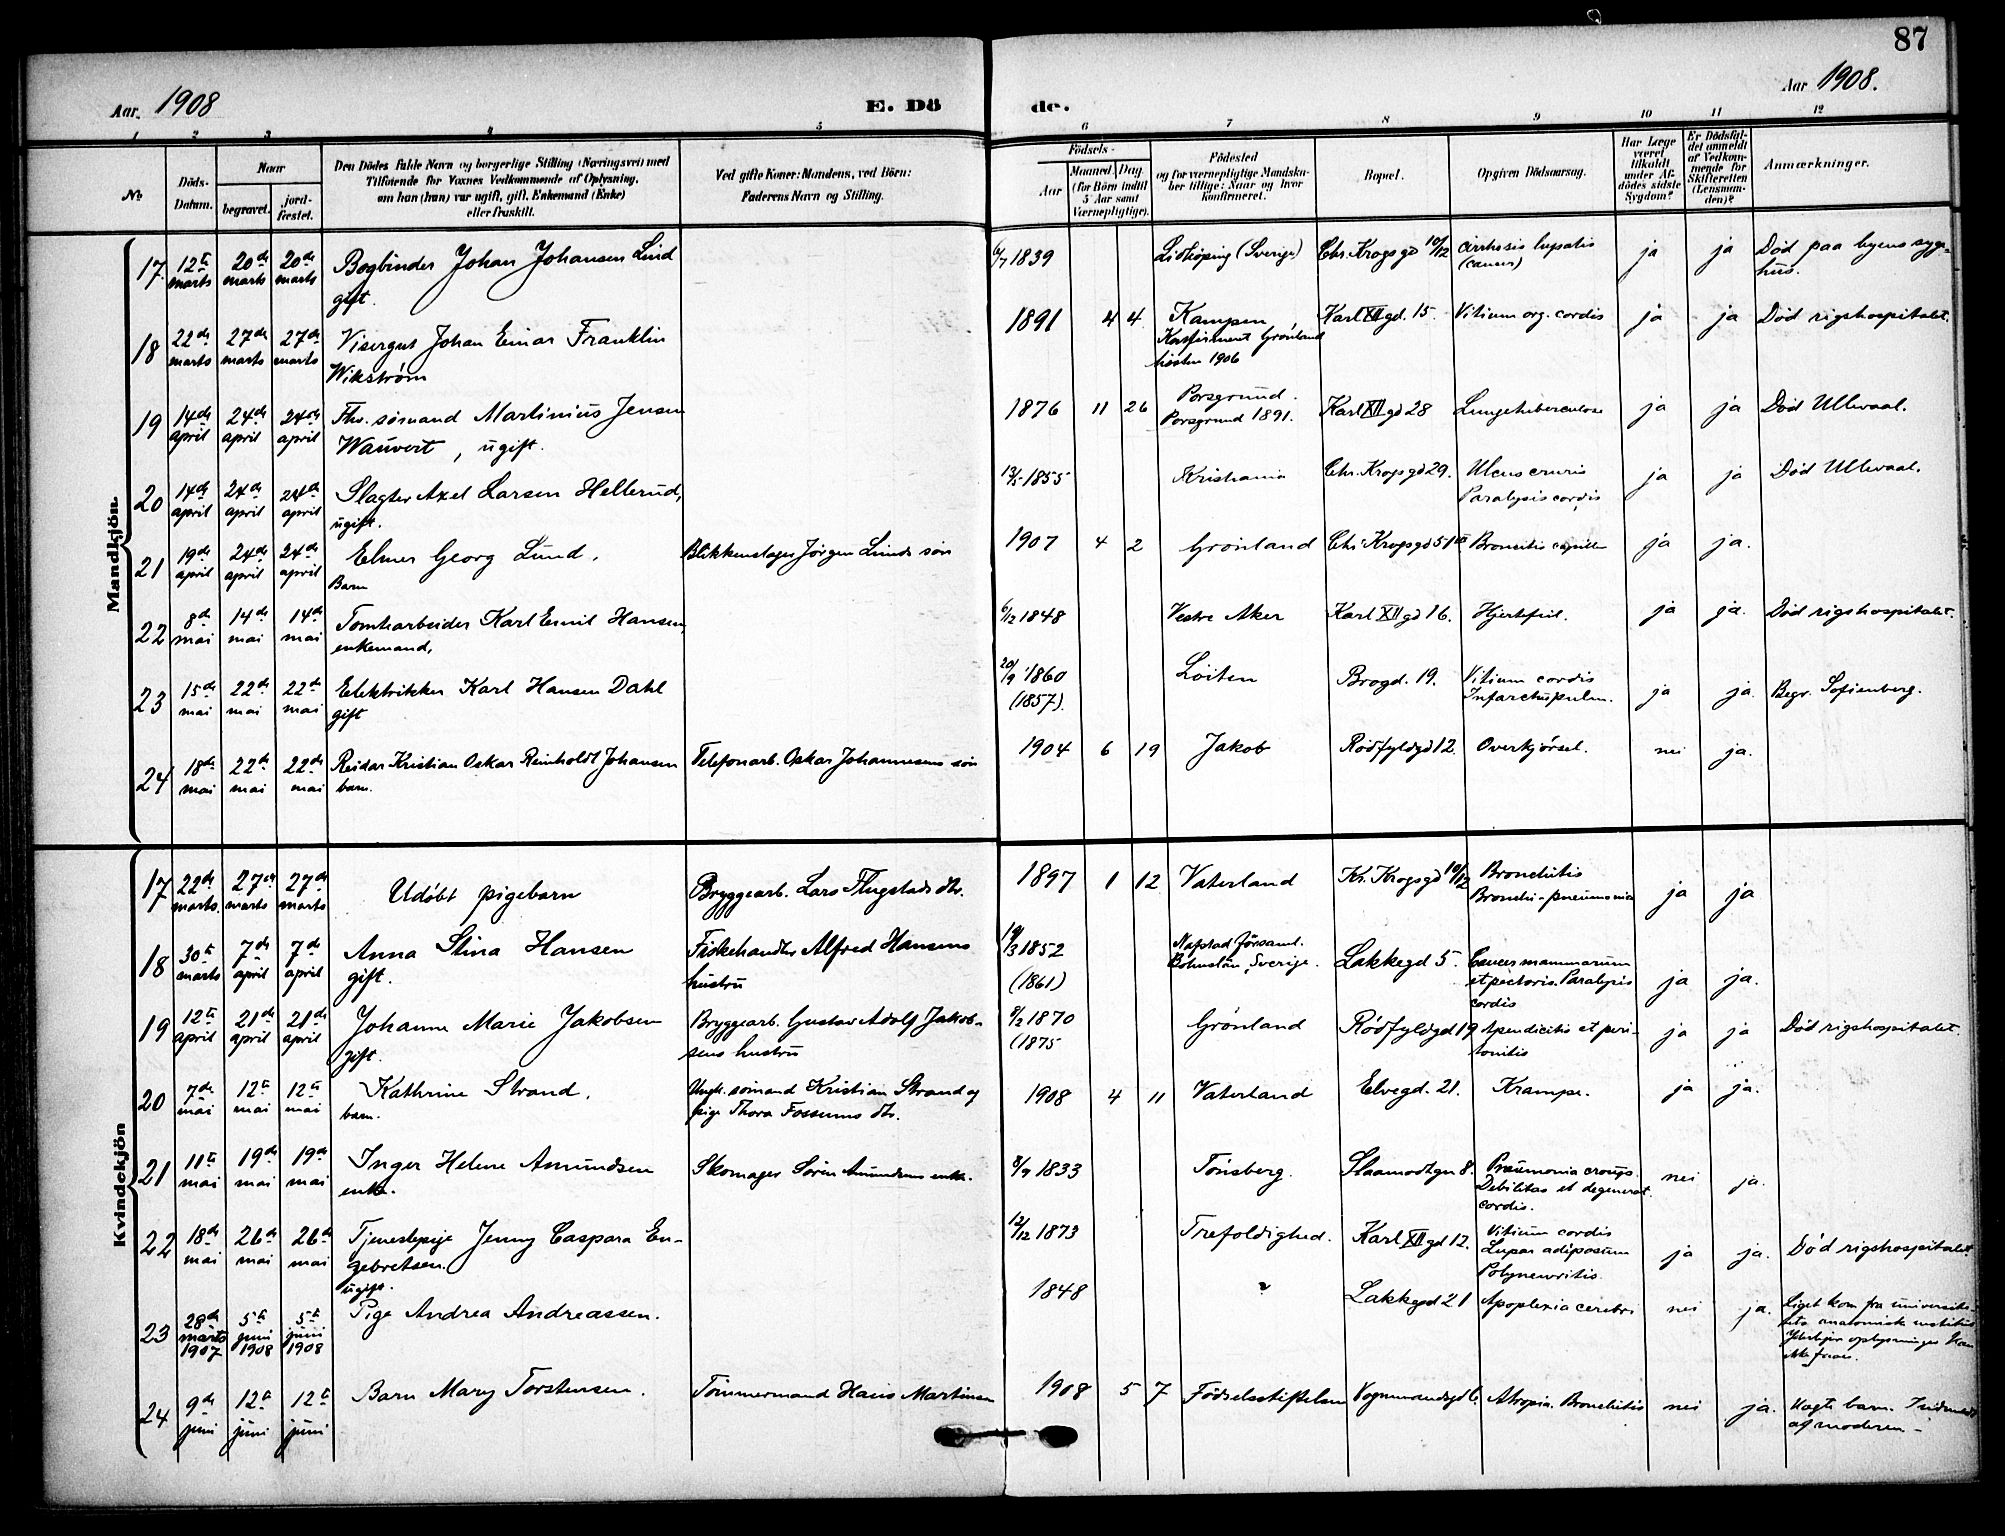 87
Aar 1908
E. Dö
de.
Aar 1908.
1 2 3 4 5 6 7 8 9 10 11 12
No
Døds-Datum.
Naar
begravet.
jord-fæstet.
Den Dödes fulde Navn og borgerlige Stilling (Næringsvei) med
Tilföiende for Voxnes Vedkommende af Oplysning,
om han (hun) var ugift, gift, Enkemand (Enke)
eller fraskilt.
Ved gifte Koner: Mandens, ved Börn:
Faderens Navn og Stilling.
Födsels-
Aar
Maaned Dag
(for Börn indtil
5 Aar samt
Værnepligtige).
Födested
og for værnepligtige Mandska-
ber tillige: Naar og hvor
konfirmeret.
Bopæl.
Opgiven Dödsaarsag.
Har Læge
været
tilkaldt
under Af-
dödes sidste
Sygdom?
Er Dödsfal-
det anmeldt
af Vedkom-
mende for
Skifteretten
(Lensman-
den)?
Anmærkninger.
Mandkjön.
17 12te marts 20de marts 20de marts Bogbinder Johan Johansen Lind gift. 6/7 1839 Lidköping (Sverige) Chr. Krogsgd 10/12 cirrhosis hepatis (cancer) ja ja Död paa byens syge-hus.
18 22de marts 27de marts 27de marts Visergut Johan Einar Franklin Wikström 1891 4 4 Kampen Konfirmeret Grönland hösten 1906 Karl XII gd. 15. Vitium org. cordis ja ja Död rigshospitalet.
19 14de april 24de april 24de april Fhv. sömand Martinius Jensen Wauvert, ugift. 1876 11 26 Porsgrund. Porsgrund 1891. Karl XII gd 28 Lungetuberculose ja ja Död Ullevaal.
20 14de april 24de april 24de april Slagter Axel Larsen Hellerud, ugift. 13/5 1855 Kristiania Chr. Krogsgd 29. Ulcus cruris Paralysis cordis ja ja Död Ullevaal.
21 19de april 24de april 24de april Elmer Georg Lund. Barn Blikkenslager Jörgen Lunds sön 1907 4 2 Grönland Chr. Krogsgd 51 Bronchitis capill. ja ja.
22 8de mai 14de mai 14de mai Tomtearbeider Karl Emil Hansen, enkemand, 6/12 1848 Vestre Aker Karl XII gd 16. Hjertefeil. ja ja. Död rigshospitalet.
23 15de mai 22de mai 22de mai Elektriker Karl Hansen Dahl gift 20/9 1860 (1857). Löiten Brogd. 19. Vitium cordis Infarctus pulm. ja ja. Begr. Sofienberg.
24 18de mai 22de mai 22de mai Reidar Kristian Oskar Reinholdt Johansen barn. Telefonarb. Oskar Johannesens sön 1904 6 19 Jakob Rödfyldgd 12. Overkjörsel. nei ja.
Kvindekjön
17 22de marts. 27de marts 27de marts Udöbt pigebarn Bryggearb. Lars Flugstads dtr. 1897 1 12 Vaterland Kr. Krogsgd 10/12 Bronchitis Broncho-pneumonia ja ja
18 30te marts 7de april 7de april Anna Stina Hansen gift. Fiskehandler Alfred Hansens hustru 19/3 1852 (1861) Bohuslän, Sverige. Lakkegd 5. Cancer mammarum et pectoris. Paralysis cordis ja ja.
19 12te april 21de april 21de april Johanne Marie Jakobsen gift. Bryggearb. Gustav Adolf Jakob-sens hustru 9/2 1870 (1875 Grönland Rödfyldgd 19 Apendicitis et peri-tonitis ja ja Död rigshospitalet.
20 7de mai 12te mai 12te mai Kathrine Strand. barn. Ungk. sömand Kristian Strand og pige Thora Fossums dtr. 1908 4 11 Vaterland Elvegd. 21. Krampe. ja ja.
21 11te mai 19de mai 19de mai Inger Helene Amundsen enke. Skomager Sören Amundsens enke. 8/9 1833 Tönsberg. Slaamodtgn 8. Pneumonia croup. Debilitas et degenerat. cordis. nei ja.
22 18de mai 26de mai 26de mai Tjenestepige Jenny Caspara En-gebretsen. ugift. 12/12 1873 Trefoldighed. Karl XII gd 12. Vitium cordis adiposum Polyneuritis. ja ja. Död rigshospitalet
23 28de marts 1907 5te juni 1908 5te juni 1908 Pige Andrea Andreassen. 1848 ? Lakkegd 21 Apoplexia cerebri nei ja. Liget kom fra universite-tets anatomisk institut Yderligere oplysninger kan ikke faaes.
24 9de juni 12te juni 12te juni Barn Mary Torstensen. Tömmermand Hans Martinsen 1908 5 7 Födselsstiftelsen Vognmandsgd 6. Atropia. Bronchitis nei ja. Uægte barn. af moderen –